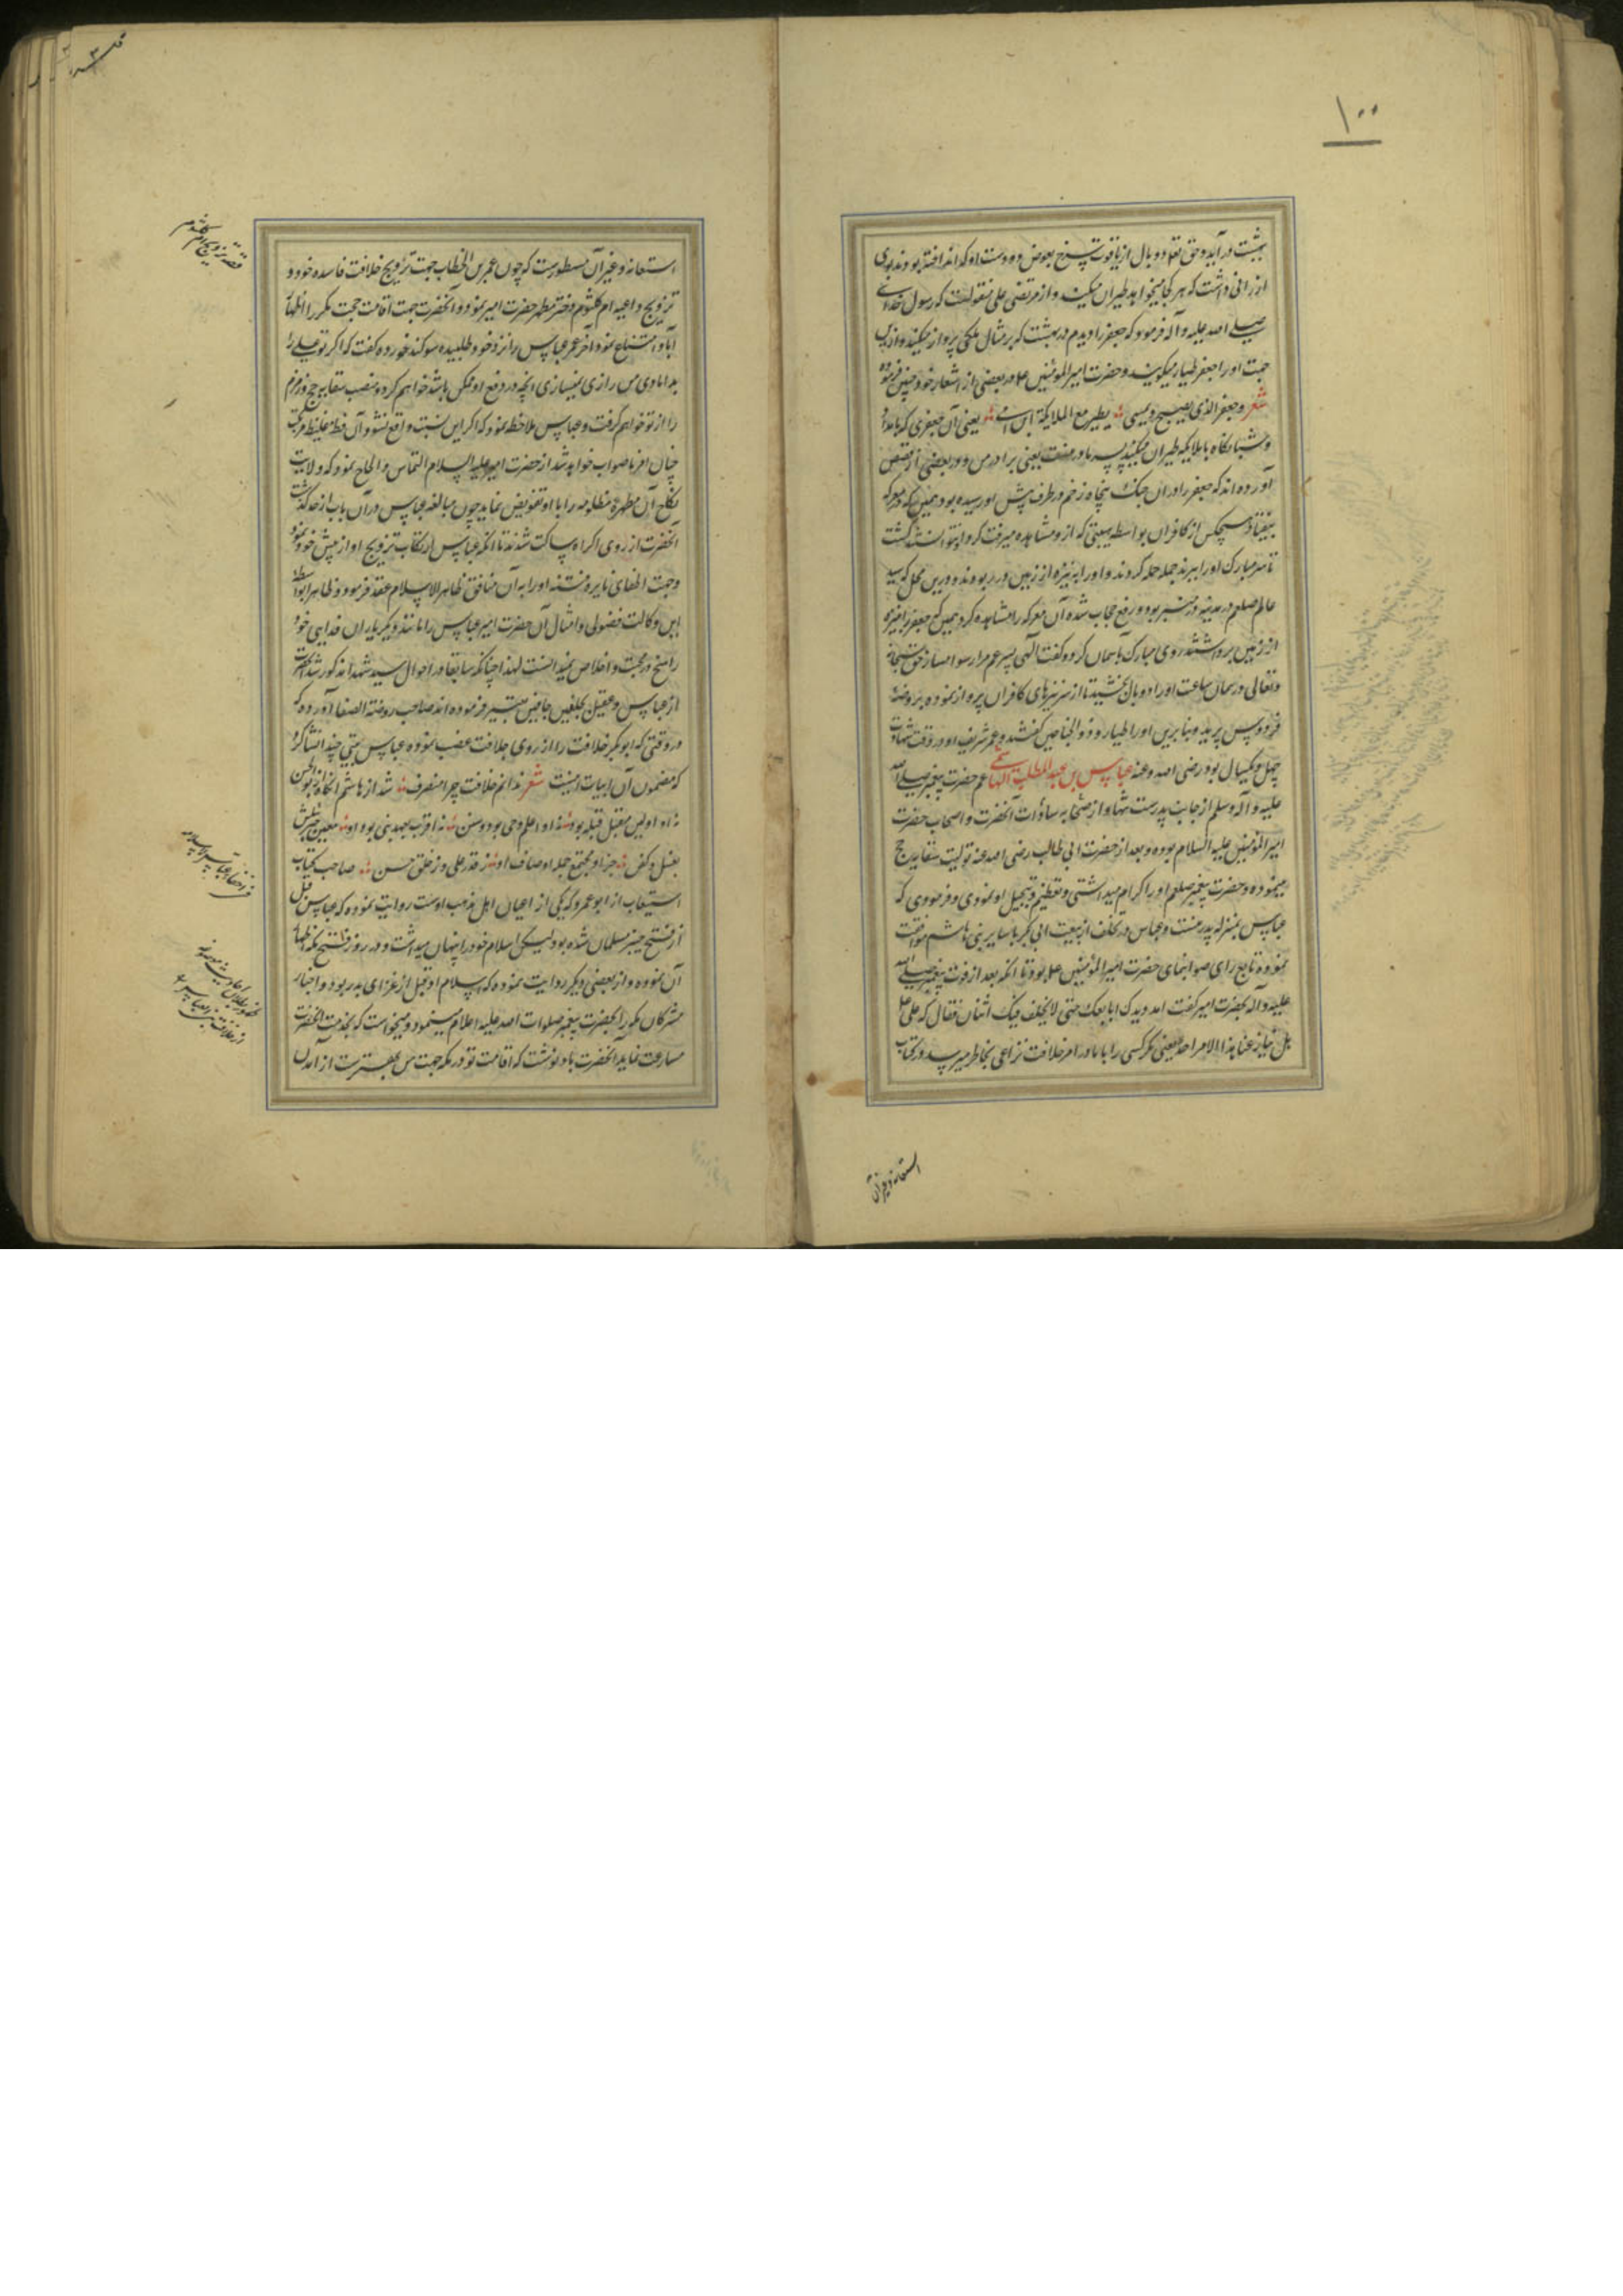 ۱۰۰
بهشت درآید و حق تعالی دو بال از یاقوت سرخ بعوض دو دست او که انداخته بودند بوی
ارزانی داشت که هر کجا میخواهد طیران میکند و از مرتضی علی منقولست که رسول خدای
صلی الله علیه و آله فرمود که جعفر را دیدم در بهشت که بر مثال ملکی پرواز میکند و ازین
جهت او را جعفر طیار میکویند و حضرت امیرالمؤمنین ع م در بعضی از اشعار خود چنین فرموده
شعر و جعفر الذی یصبح و یمسی یطیر مع الملایکة ابن امی یعنی آن جعفری که بامداد
و شبانکاه با ملایکه طیران میکند پسر مادر منست یعنی برادر من و در بعضی از قصص
آورده اند که جعفر را در آن جنک پنجاه زخم در طرف پیش او رسیده بود همین که در معرکه
بیفتاد هیچکس از کافران بواسطه هیبتی که از و مشاهده میرفت کرد او نتوانستند کشت
تا سر مبارک او را ببرند جمله حمله کردند و او را به نیزه از زمین در ربودند و درین محل که سید
عالم صلعم در مدینه در منبر بود و رفع حجاب شده آن معرکه را مشاهده کرد همین که جعفر را بنیزه
از زمین برداشتند روی مبارک بآسمان کرد و کفت الهی پسر عم مرا رسوا مساز حق سبحانه
و تعالی در همان ساعت او را دو بال بخشید تا از سر نیزهای کافران پرواز نموده بروضهٔ
فردوس پرید و بنا برین او را طیار و ذو الجناحین کفتند و عمر شریف او در وقت شهادت
چهل و یکسال بود رضی الله عنه عباس بن عبد المطلب الهاشمی عم حضرت پیغمبر صلی الله
علیه و آله و سلم از جانب پدرست تنها و از صحابه سادات آنحضرت و اصحاب حضرت
امیرالمؤمنین علیه السلام بوده و بعد از حضرت ابی طالب رضی الله عنه تولیت سقایه حج
مینموده و حضرت پیغمبر صلعم او را اکرام میداشتی و تعظیم و تبجیل او نمودی و فرمودی که
عباس بمنزله پدر منست و عباس در تخلف از بیعت ابی بکر با سایر بنی هاشم موافقت
نموده تابع رای صوابنمای حضرت امیرالمؤمنین ع م بود تا انکه بعد از فوت پیغمبر صلی الله
علیه و آله بحضرت امیر کفت امدد یدک ابایعک حتی لا یختلف فیک اثنان فقال که علی ع
هل ینازعنا هذا الامر احد یعنی مکر کسی را با ما در امر خلافت نزاعی بخاطر میرسد و در کتاب
استغاثه و غیر آن
استغاثه و غیر آن مسطورست که چون عمر بن الخطاب جهت ترویج خلافت فاسده خود
تزویج داعیه ام کلثوم دختر مطهر حضرت امیر نمود و آنحضرت جهت اقامت حجت مکرر اظهار
ابا و امتناع نمود آخر عمر عباس را نزد خود طلبیده سوکند خورده کفت که اکر تو علی را
بدامادی من راضی نمیسازی انچه در دفع او ممکن باشد خواهم کرد و منصب سقایه حج و زمزم
را از تو خواهم کرفت و عباس ملاحظه نمود که اکر این نسبت واقع نشود آن فظ غلیظ مرتکب
چنان امر ناصواب خواهد شد از حضرت امیر علیه السلام التماس و الحاح نمود که ولایت
نکاح آن مطهرهٔ مظلومه را باو تفویض نماید چون مبالغه عباس در آن باب از حد کذشت
آنحضرت از روی اکراه ساکت شدند تا انکه عباس ارتکاب تزویج او از پیش خود نمود
و جهت اطفای نایره فتنه او را به آن منافق ظاهر الاسلام عقد فرمود و ظاهرا بواسطهٔ
این وکالت فضولی و امثال آن حضرت امیر عباس را مانند دیکر یاران فدایی خود
راسخ در محبت و اخلاص نمیدانست لهذا چنانکه سابقا در احوال سید شهدا مذکور شد آنحضرت
از عباس و عقیل بجلفین جافیین تعبیر فرموده اند صاحب روضة الصفا آورده که
در وقتی که ابوبکر خلافت را از روی جلافت غصب نموده عباس بیتی چند انشا کرد
که مضمون آن ابیات اینست شعر ندانم خلافت چرا منصرف شد از هاشم انکاه از بوالحسن
نه او اولین مقبل قبله بود نه او اعلم وحی بود و سنن نه اقرب بعهد نبی بود او معین جبرئلش
بغسل و کفن جز او مجتمع جمله اوصاف او ز قدر علی وز خلق حسن صاحب کتاب
استیعاب از ابو عمرو که یکی از اعیان اهل مذهب اوست روایت نموده که عباس قبل
از فتح خیبر مسلمان شده بود لیکن اسلام خود را پنهان میداشت و در روز فتح مکه اظهار
آن نموده و از بعضی دیکر روایت نموده که اسلام او قبل از غزای بدر بود و اخبار
مشرکان مکه را بحضرت پیغمبر صلوات الله علیه اعلام مینمود و میخواست که بخدمت آنحضرت
مسارعت نماید آنحضرت باو نوشت که اقامت تو در مکه جهت من بهترست از آمدن
قصه تزویج ام کلثوم